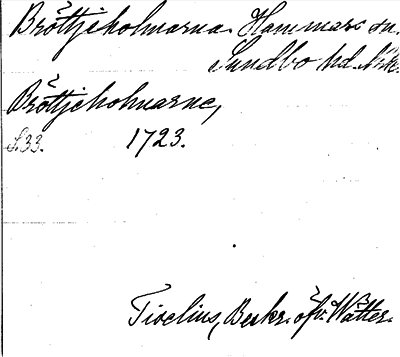 Bröttjeholmarna. Hammars sn.
Sundbo hd. Nke.
Bröttjeholmarne,
S.33. 1723.
Tiselius, Beskr. öfv. Wätter.